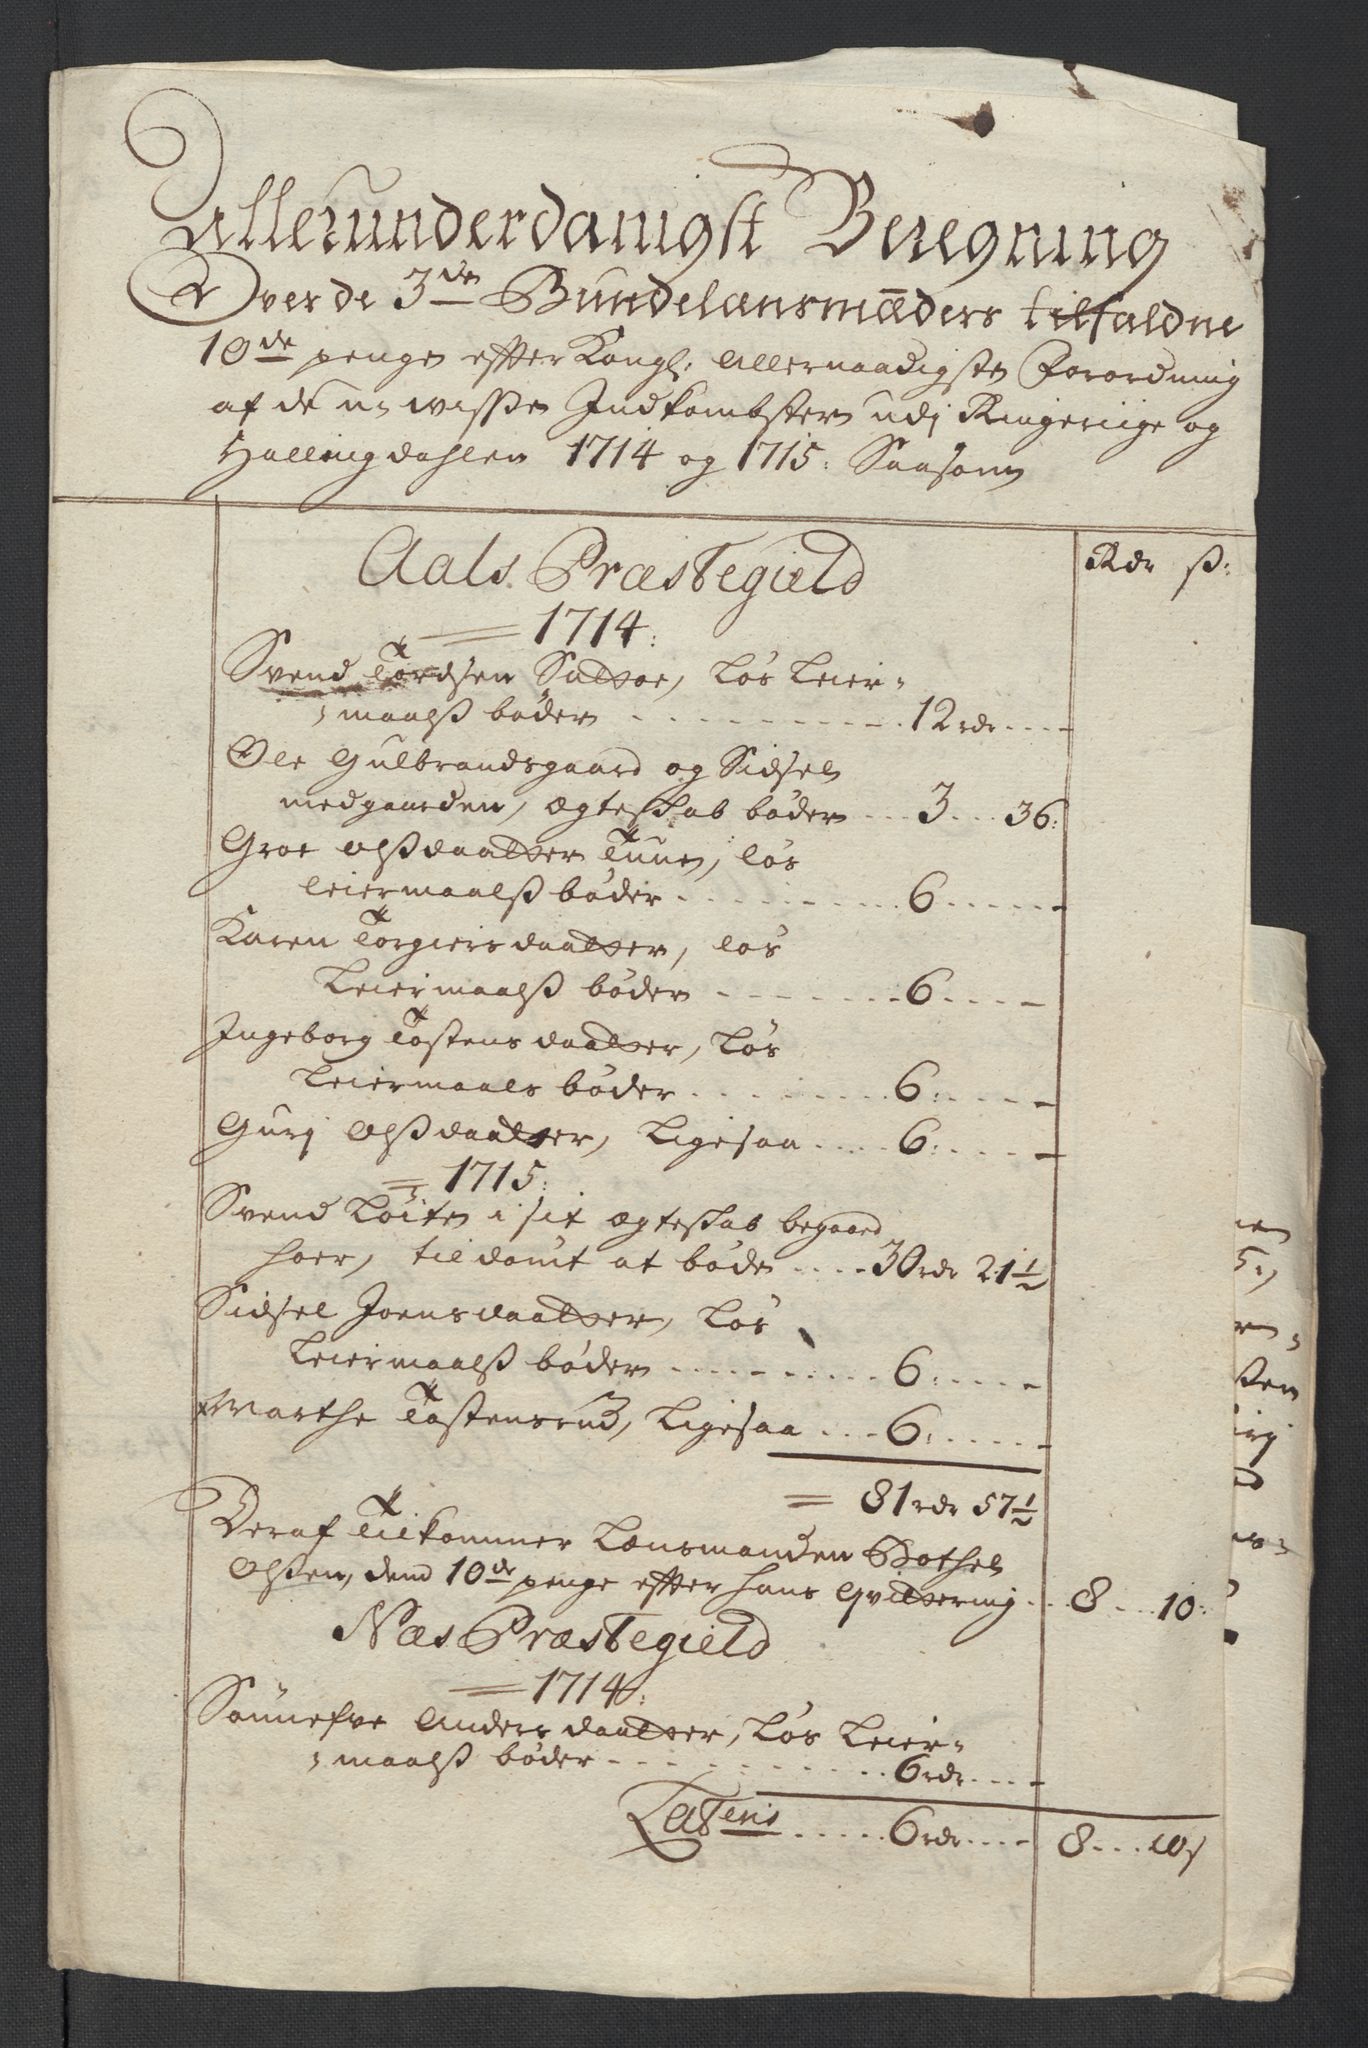 Allerunderdanigst Beregning
Over de 3de Bundelænsmænders tilfaldne
10de penge efter Kongl: Allernaadigste Forordning
af de u-wisse Indkombster udj Ringeriige og
Hallingdahlen 1714 og 1715: Saasom
Aals Præstegield
Rdr ß:
1714:
Svend Tordsen Sattøe, løs leier-
maalß bøder 12 rdr
Ole Gulbrandsgaard og Sidsel
medgaarden, ægteskab bøder 3 36:
Groe Olßdaatter Tune, løs
leiermaalß bøder 6
Karen Torgiersdaatter, løs
leiermaalß bøder 6
Ingeborg Tostensdaatter, løs
leiermaals bøder 6:
Gurj Olßdaatter, ligesaa 6:
1715:
Svend Løiten i sit ægteskab begaaed
hoer, tildømt at bøde 30 rdr 21½
Sidsel Joensdaatter, løs
leiermaalß bøder 6:
Marthe Tostensrud, ligesaa 6:
81 rdr 57½
Deraf tilkommer Lænsmanden Bothel
Olßen, dend 10de penge efter hans qvittering 8 10:
Næs Præstegield
1714:
Sønnefve Andersdaatter, løs leier-
maalß bøder 6 rdr
Lateris 6 rdr 8 10